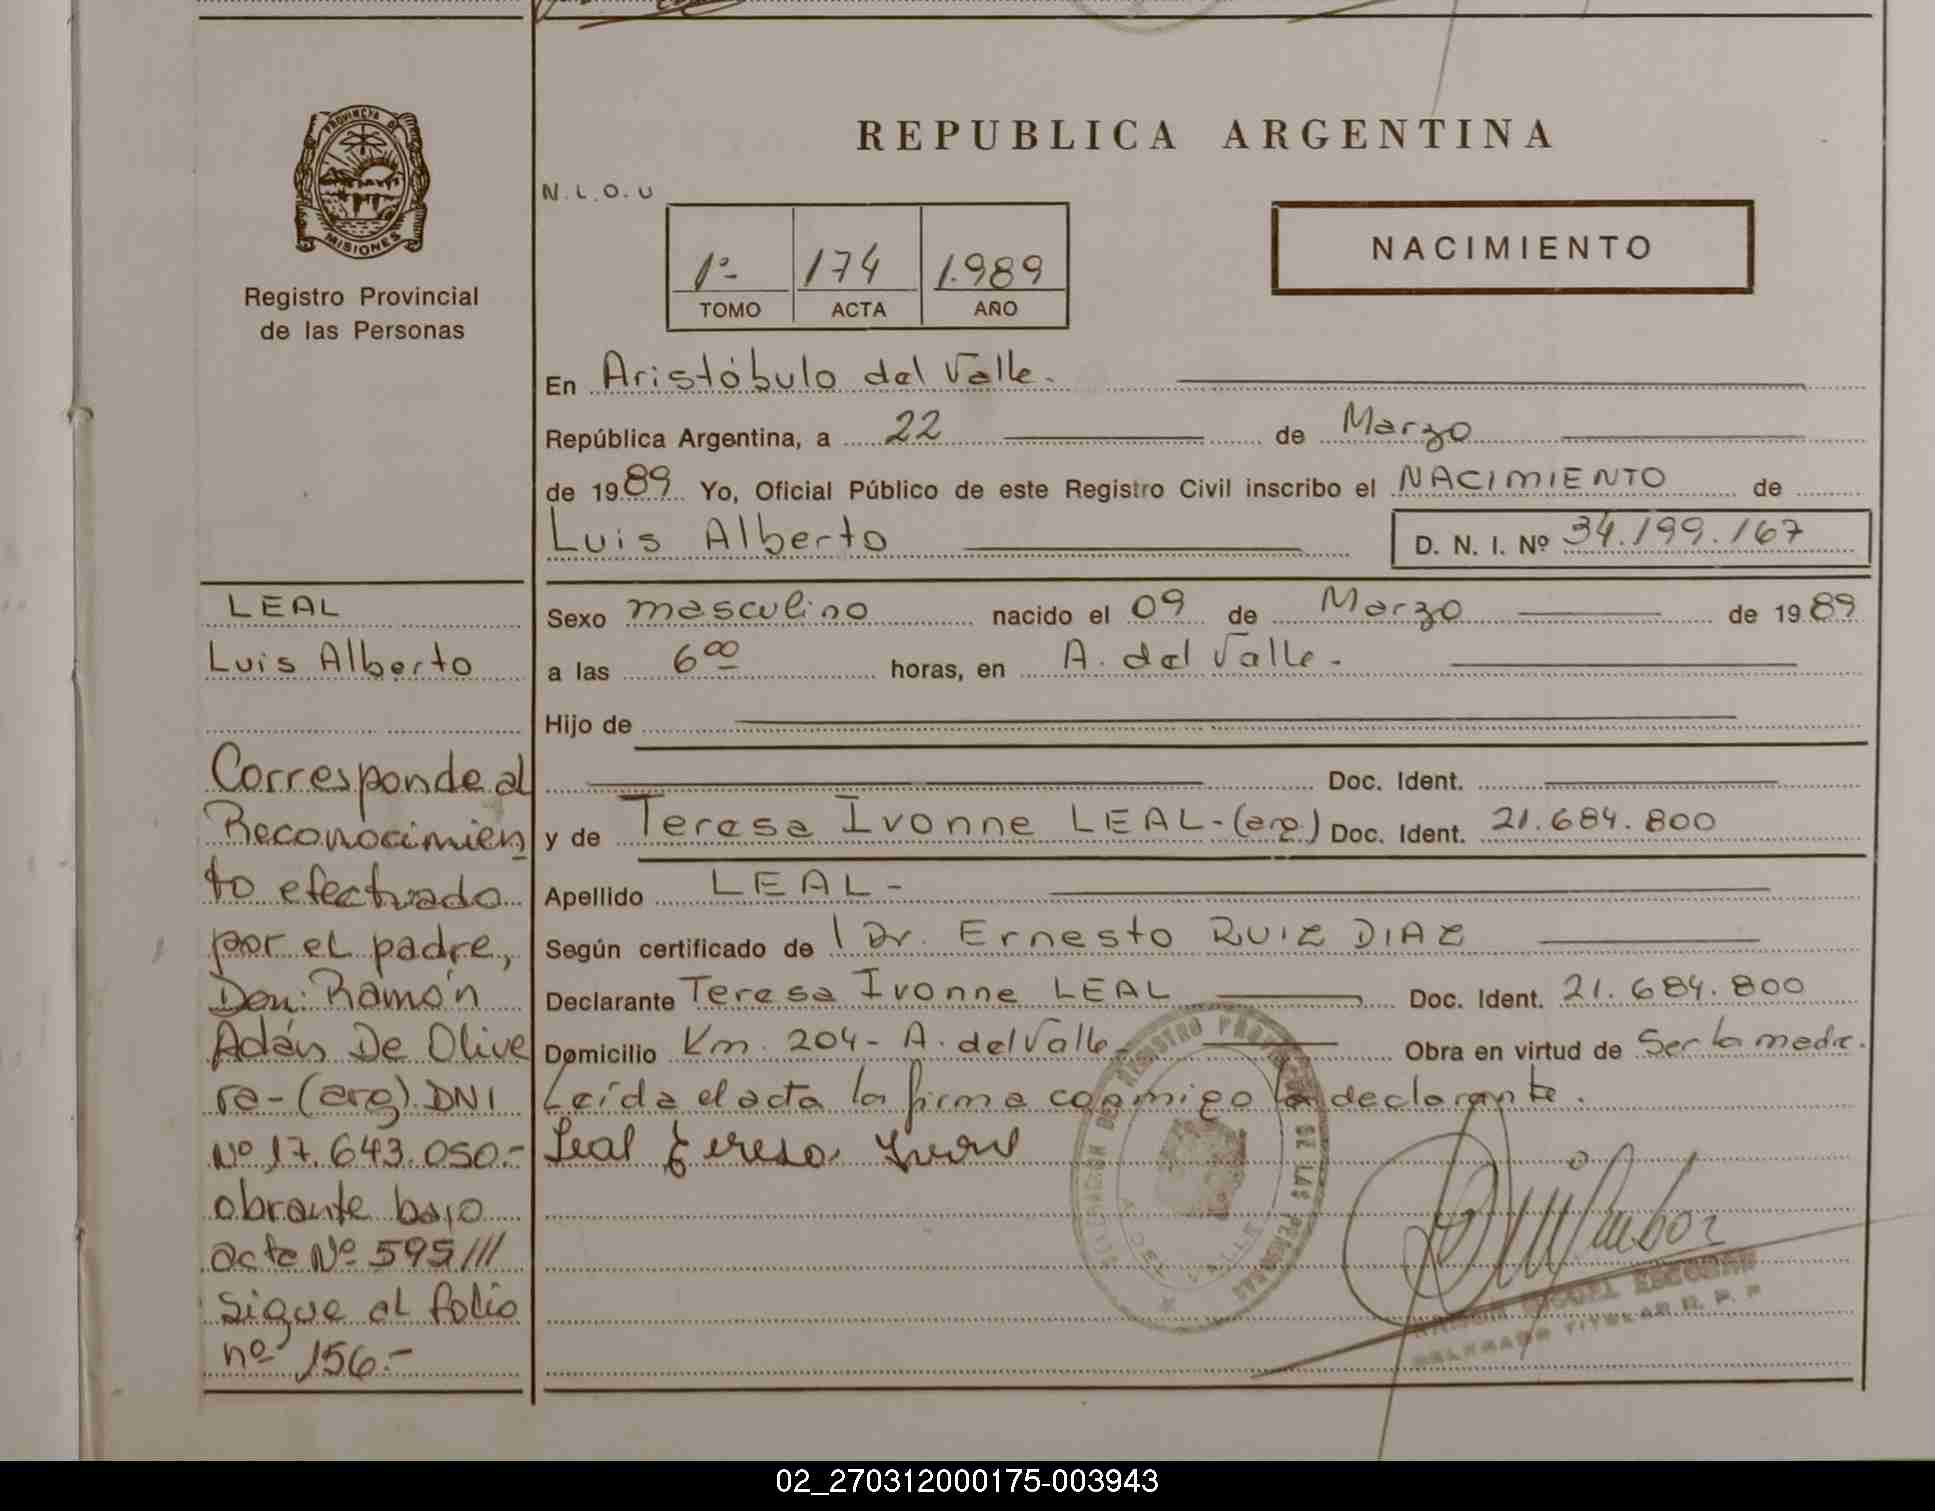 PROVINCIA DE
MISIONES
Registro Provincial
de las Personas
REPUBLICA ARGENTINA
N.L.O.U
1º 174 1.989
TOMO ACTA AÑO
NACIMIENTO
En Aristóbulo del Valle.
República Argentina, a 22 de Marzo
de 1989 Yo, Oficial Público de este Registro Civil inscribo el NACIMIENTO de
Luis Alberto D. N. I. Nº 34.199.167
Sexo masculino nacido el 09 de Marzo de 1989
a las 6 00 horas, en A. del Valle.
Hijo de
Doc. Ident.
y de Teresa Ivonne LEAL-(arg.) Doc. Ident. 21.684.800
Apellido LEAL-
Según certificado de Dr. Ernesto RUIZ DIAZ
Declarante Teresa Ivonne LEAL Doc. Ident. 21.684.800
Domicilio Km. 204- A. del Valle Obra en virtud de Ser la madre.
Leída el acta la firma conmigo la declarante.
Leal Teresa Ivone
LEAL
Luis Alberto
Corresponde al
Reconocimien
to efectuado
por el padre,
Don: Ramón
Adán De Olive
ra-(arg). DNI
Nº 17.643.050.-
obrante bajo
acta Nº 595///
Sigue al folio
nº 156.-
DEL REGISTRO DE LAS PERSONAS
MIGUEL ESCOBAR
DELEGADO TITULAR R. P. P
02_270312000175-003943